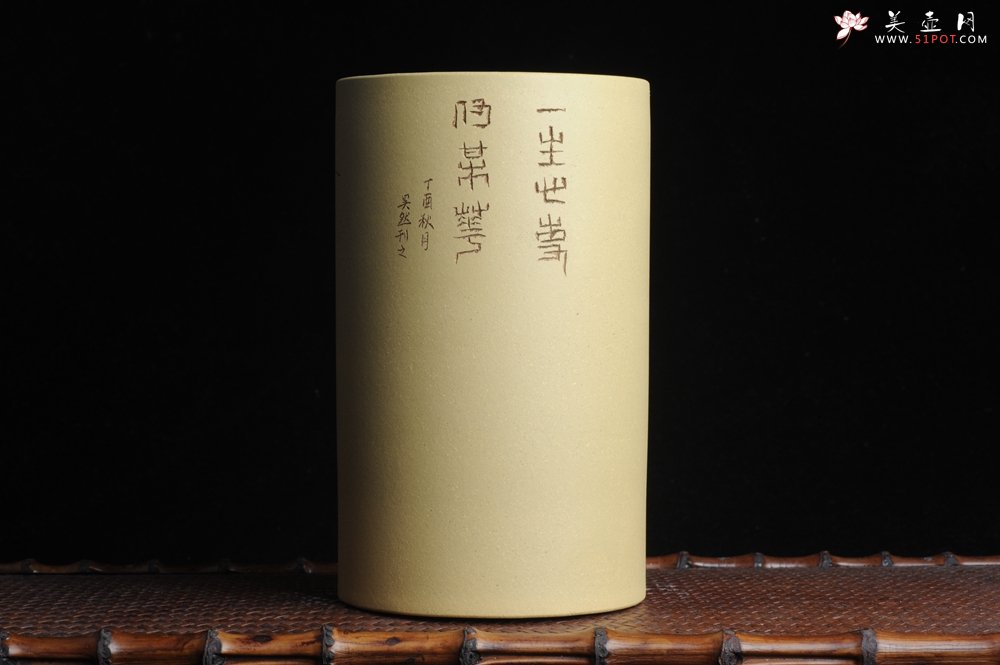 美壶网
WWW.51POT.COM
一生心事
某華
丁酉秋月
吴然刊之